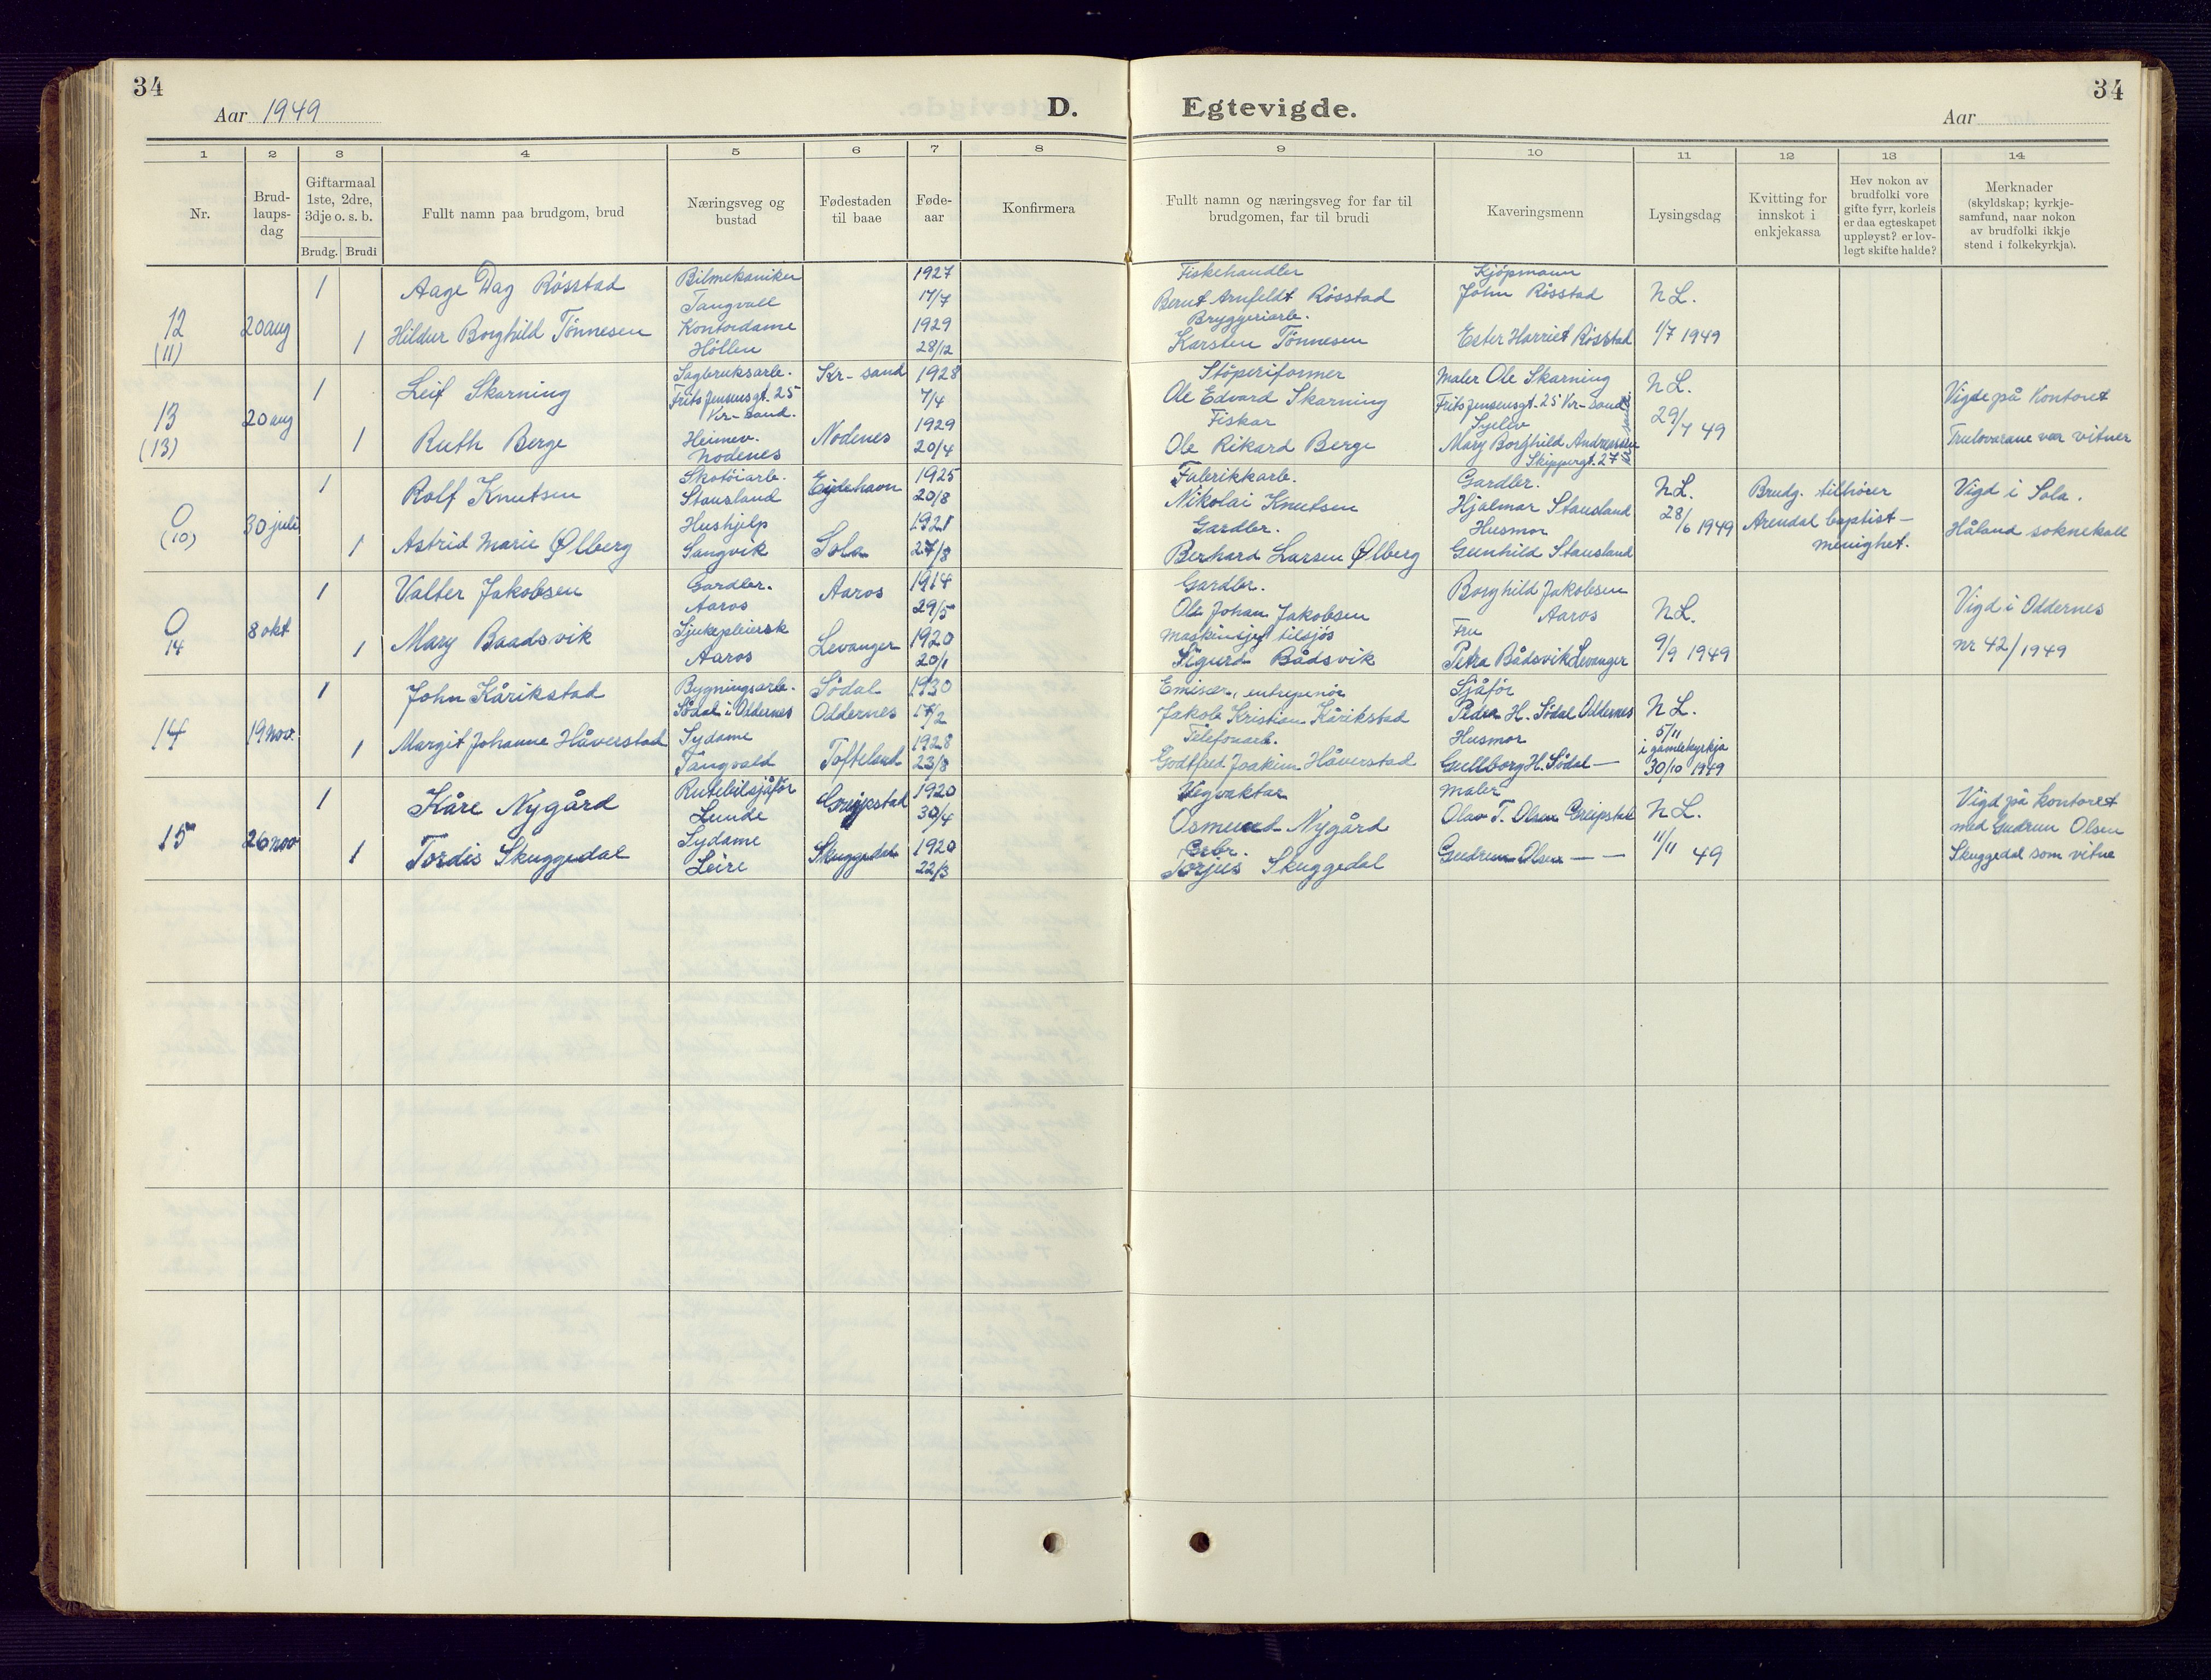 34
Aar 1949
D.
Egtevigde.
Aar
34
1 2 3 4 5 6 7 8 9 10 11 12 13 14
Nr.
Brud-
laups-
dag
Giftarmaal
1ste, 2dre,
3dje o. s. b.
Brudg. Brudi
Fullt namn paa brudgom, brud
Næringsveg og
bustad
Fødestaden
til baae
Føde-
aar
Konfirmera
Fullt namn og næringsveg for far til
brudgomen, far til brudi
Kaveringsmenn
Lysingsdag
Kvitting for
innskot i
enkjekassa
Hev nokon av
brudfolki vore
gifte fyrr, korleis
er daa egteskapet
uppløyst? er lov-
legt skifte halde?
Merknader
(skyldskap; kyrkje-
samfund, naar nokon
av brudfolki ikkje
stend i folkekyrkja).
12
(11)
20 aug
1
Aage Dag Røsstad
Bilmekaniker
Tangvall
1927
17/7
Fiskehandler
Bernt Arnfeldt Røsstad
Kjøpmann
John Røsstad
N L.
1/7 1949
1
Hildur Borghild Tønnesen
Kontordame
Høllen
1929
28/12
Bryggeriarb.
Karsten Tønnesen
Ester Harriet Røsstad
13
(13)
20 aug
1
Leif Skarning
Sagbruksarb.
Frits Jensensgt. 25
Kr-sand.
Kr-sand
1928
7/4
Støperiformer
Ole Edvard Skarning
Maler Ole Skarning
Frits Jensensgt. 25 Kr-sand
N L.
29/7 49
Vigde på Kontoret
1
Ruth Berge
Heimev.
Nodenes
Nodenes
1929
20/4
Fiskar
Ole Rikard Berge
Syellv
Mary Borghild Andreassen
Skippergt. 27
Trulovarane var vitner
0
(10)
30 juli
1
Rolf Knutsen
Skotøiarb.
Stausland
Eydehavn
1925
20/8
Fabrikkarb.
Nikolai Knutsen
Gardbr.
Hjalmar Stausland
N L.
28/6 1949
Brudg. tilhører
Arendal baptist-
menighet.
Vigd i Sola.
Håland soknekall
1
Astrid Marie Ølberg
Hushjelp
Langvik
Sola
1921
27/8
Gardbr.
Berhard Larsen Ølberg
Husmor
Gunhild Stausland
0
14
8 okt
1
Valter Jakobsen
Gardbr.
Aaros
Aaros
1914
29/5
Gardbr.
Ole Johan Jakobsen
Borghild Jakobsen
Aaros
N L.
9/9 1949
Vigd i Oddernes
nr 42/1949
1
Mary Baadsvik
Sjukepleiersk
Aaros
Levanger
1920
20/1
Maskinsjef tilsjøs
Sigurd Bådsvik
Fru
Petra Bådsvik Levanger
14
19 nov.
1
John Kårikstad
Bygningsarb.
Sødal i Oddernes
Sødal
Oddernes
1930
17/2
Emisær, entrepenør
Jakob Kristian Kårikstad
Sjåfør
Peder H. Sødal Oddernes
N L.
5/11
i gamlekyrkja
30/10 1949
1
Margit Johanne Håverstad
Sydame
Tangvald
Tofteland
1928
23/8
Telefonarb.
Godtfred Joakim Håverstad
Husmor
Gullborg H. Sødal —
15
26 nov
1
Kåre Nygård
Rutebilsjåfør
Lunde
Greipstad
1920
30/4
Vegvaktar
Osmund Nygård
Maler
Olav T. Olsen Greipstad
N L.
11/11 49
Vigd på kontoret
med Gudrun Olsen
Skuggedal som vitne
1
Tordis Skuggedal
Sydame
Leire
Skuggedal
1920
22/3
Torjus Skuggedal
Gudrun Olsen — —